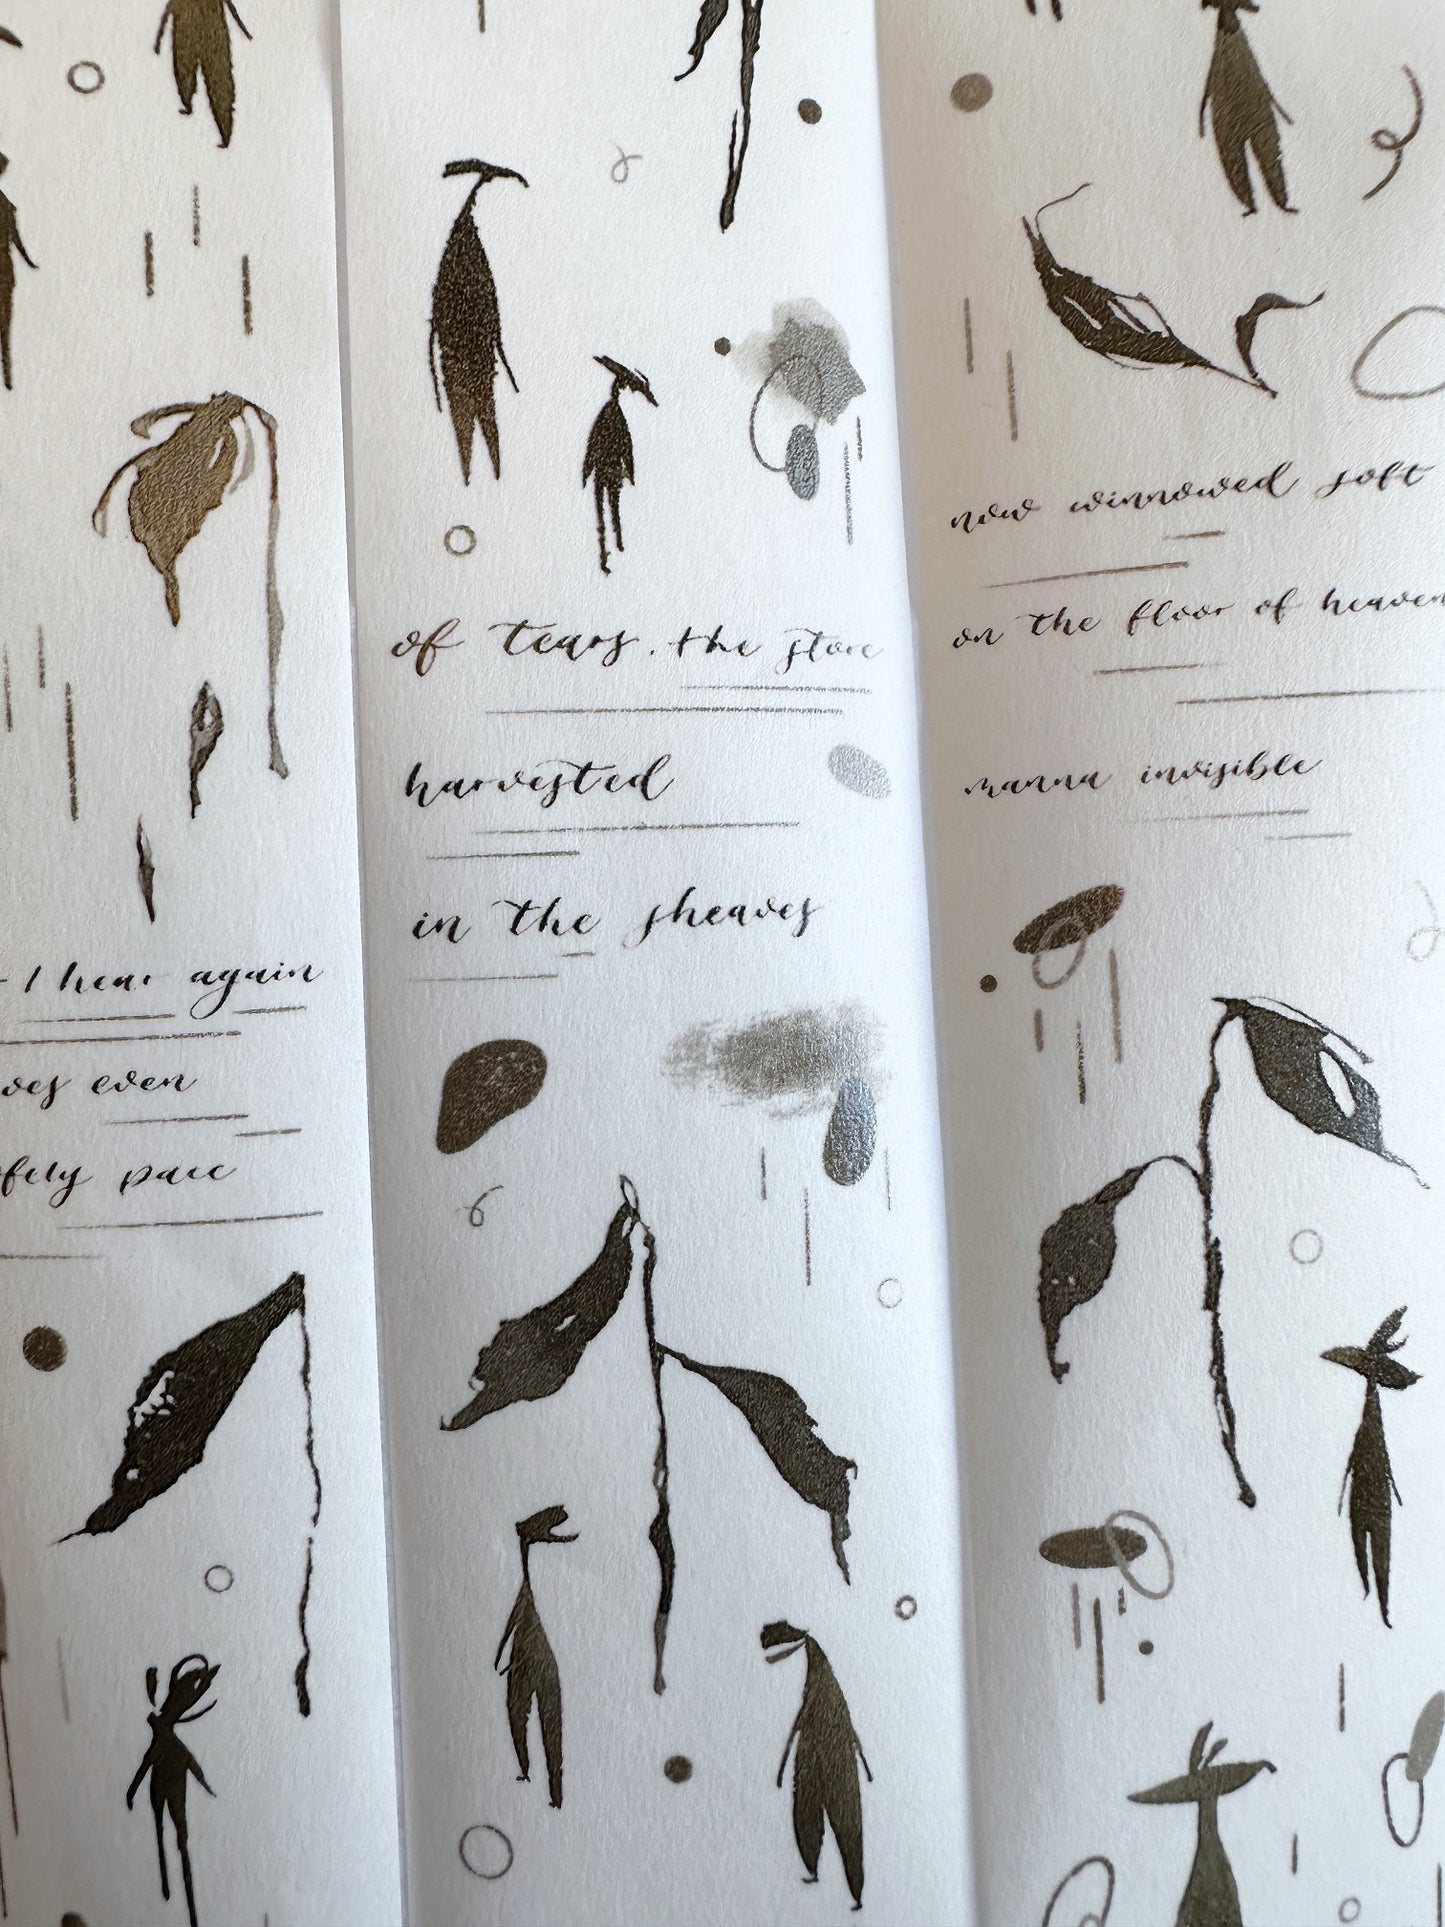 - I hear again
ves even
fely pace
of tears. the store
harvested
in the sheaves
now winnowed soft
on the floor of heaven
manna invisible